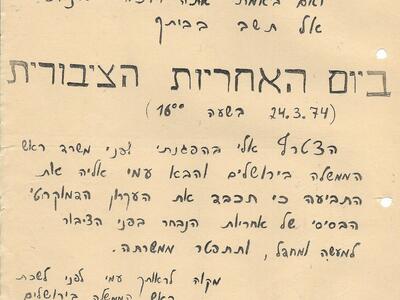 ואם באמת אתה רוצה
אל תשב בביתך
ביום האחריות הציבורית
(24.3.74 בשעה 16⁰⁰)
הצטרף אלי בהפגנתי לפני משרד ראש
הממשלה בירושלים והבא עמי אליה את
התביעה כי תכבד את העקרון הדמוקרטי
הבסיסי של אחריות הנבחר בפני הציבור
למעשיו ומחדליו, ותתפטר ממשרתה.
מקוה לראותך עמי לפני לשכת
ראש הממשלה בירושלים